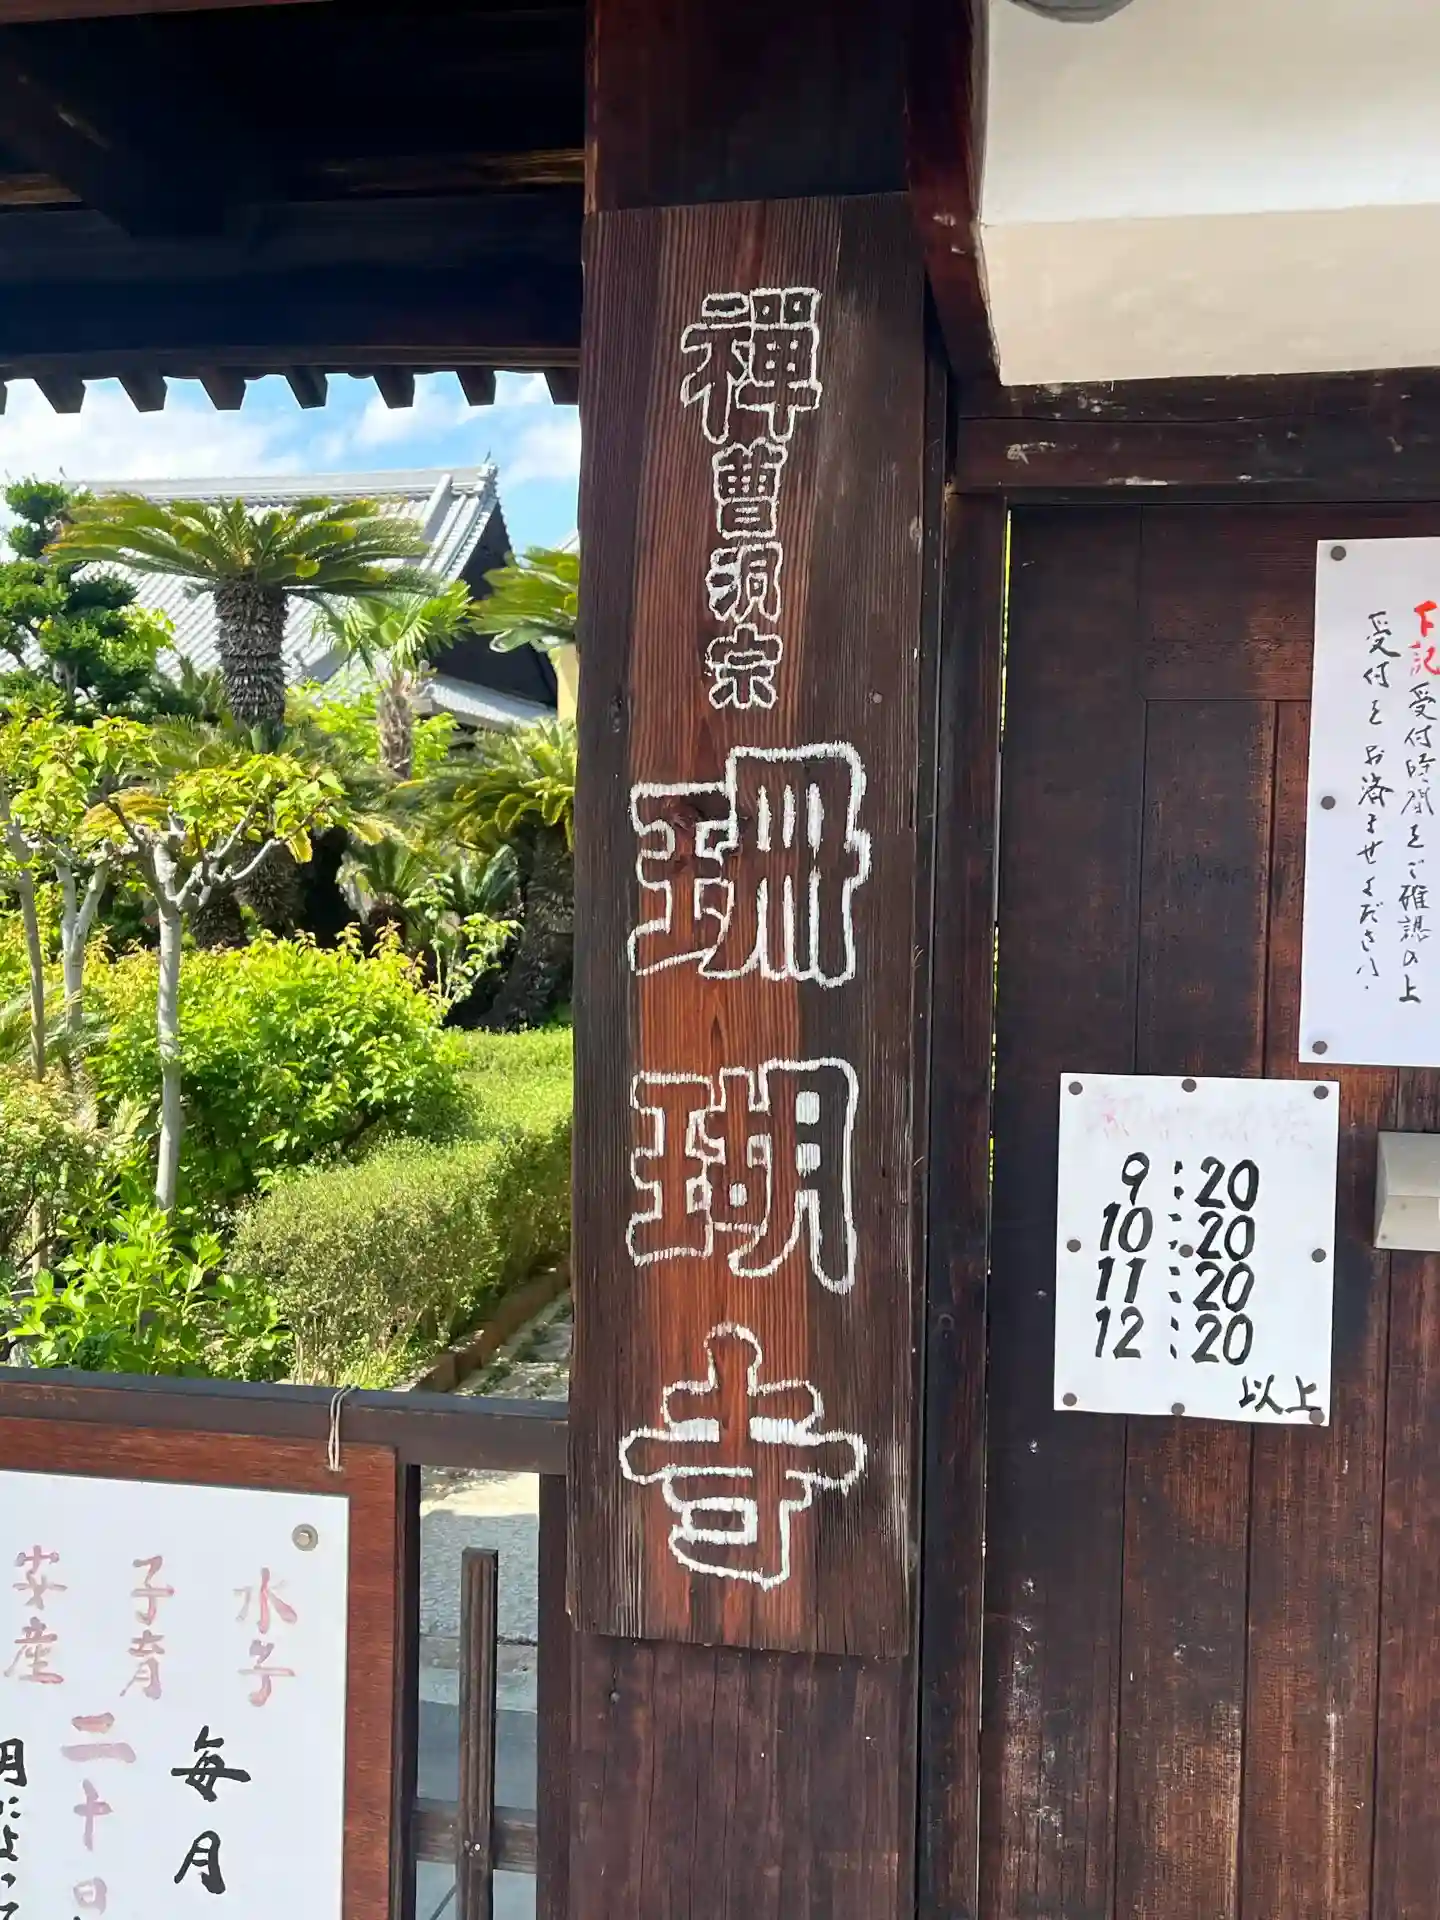 禪曹洞宗
珊瑚寺
下記受付時間をご確認の上
受付をお済ませください.
9:20
10:20
11:20
12:20
以上
水子
子育
安産
毎月
二十日
月によって